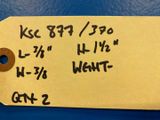 KSC 877/370
L-3/8" H-1½"
W-3/8 WEHT-
QTY 2